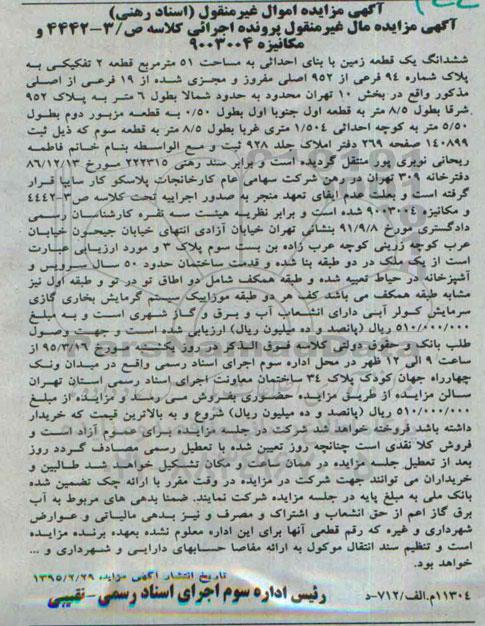 آگهی مزایده اموال غیرمنقول (اسناد رهنی)
آگهی مزایده مال غیرمنقول پرونده اجرائی کلاسه ص/۳-۴۴۴۲ و
مکانیزه ۹۰۰۳۰۰۴
ششدانگ یک قطعه زمین با بنای احداثی به مساحت ۵۱ مترمربع قطعه ۲ تفکیکی به
پلاک شماره ۹۴ فرعی از ۹۵۲ اصلی مفروز و مجزی شده از ۱۹ فرعی از اصلی
مذکور واقع در بخش ۱۰ تهران محدود به حدود شمالا بطول ۶ متر به پلاک ۹۵۲
شرقا بطول ۸/۵ متر به قطعه اول جنوبا اول بطول ۰/۵۰ به قطعه مزبور دوم بطول
۵/۵۰ متر به کوچه احداثی ۱/۵۰۴ متری غربا بطول ۸/۵ متر به قطعه سوم که ذیل ثبت
۱۴۰۸۹۹ صفحه ۲۶۹ دفتر املاک جلد ۹۲۸ ثبت و مع الواسطه بنام خانم فاطمه
ریحانی نوری پور منتقل گردیده است و برابر سند رهنی ۲۲۲۳۱۵ مورخ ۸۶/۱۲/۱۳
دفترخانه ۳۰۹ تهران در رهن شرکت سهامی عام کارخانجات پلاسکو کار سایپا قرار
گرفته است و بعلت عدم ایفای تعهد منجر به صدور اجراییه تحت کلاسه ص۳-۴۴۴۲
و مکانیزه ۹۰۰۳۰۰۴ شده است و برابر نظریه هیئت سه نفره کارشناسان رسمی
دادگستری مورخ ۹۱/۹/۸ بنشانی تهران خیابان آزادی انتهای خیابان جیحون خیابان
عرب کوچه زرینی کوچه عرب زاده بن بست سوم پلاک ۳ و مورد ارزیابی عبارت
است از یک ملک در دو طبقه بنا شده و قدمت ساختمان حدود ۵۰ سال سرویس و
آشپزخانه در حیاط تعبیه شده و طبقه همکف شامل دو اطاق تو در تو و طبقه اول نیز
مشابه طبقه همکف می باشد کف هر دو طبقه موزاییک سیستم گرمایش بخاری گازی
سرمایش کولر آبی دارای انشعاب آب و برق و گاز شهری است و به مبلغ
۵۱۰/۰۰۰/۰۰۰ ریال (پانصد و ده میلیون ریال) ارزیابی شده است و جهت وصول
طلب بانکار و حقوق دولتی کلاسه فوق الذکر در روز یکشنبه مورخ ۹۵/۳/۱۶ از
ساعت ۹ الی ۱۲ ظهر در محل اداره سوم اجرای اسناد رسمی واقع در میدان ونک
چهارراه جهان کودک پلاک ۳۴ ساختمان معاونت اجرای اسناد رسمی استان تهران
سالن مزایده از طریق مزایده حضوری بفروش می رسد و مزایده از مبلغ
۵۱۰/۰۰۰/۰۰۰ ریال (پانصد و ده میلیون ریال) شروع و به بالاترین قیمت که خریدار
داشته باشد فروخته خواهد شد شرکت در جلسه مزایده برای عموم آزاد است و
فروش کلا نقدی است چنانچه روز تعیین شده با تعطیل رسمی مصادف گردد روز
بعد از تعطیل جلسه مزایده در همان ساعت و مکان تشکیل خواهد شد طالبین و
خریداران می توانند جهت شرکت در مزایده در وقت مقرر با ارائه چک تضمین شده
بانک ملی به مبلغ پایه در جلسه مزایده شرکت نمایند. ضمنا بدهی های مربوط به آب
برق گاز اعم از حق انشعاب و اشتراک و مصرف و نیز بدهی مالیاتی و عوارض
شهرداری و غیره که رقم قطعی آنها برای این اداره معلوم نشده بعهده برنده مزایده
است و تنظیم سند انتقال موکول به ارائه مفاصا حسابهای دارایی و شهرداری و ...
خواهد بود.
تاریخ انتشار آگهی مزایده ۱۳۹۵/۲/۲۹
۱۱۳۰۴م.الف/۷۱۲-د رئیس اداره سوم اجرای اسناد رسمی-نقیبی